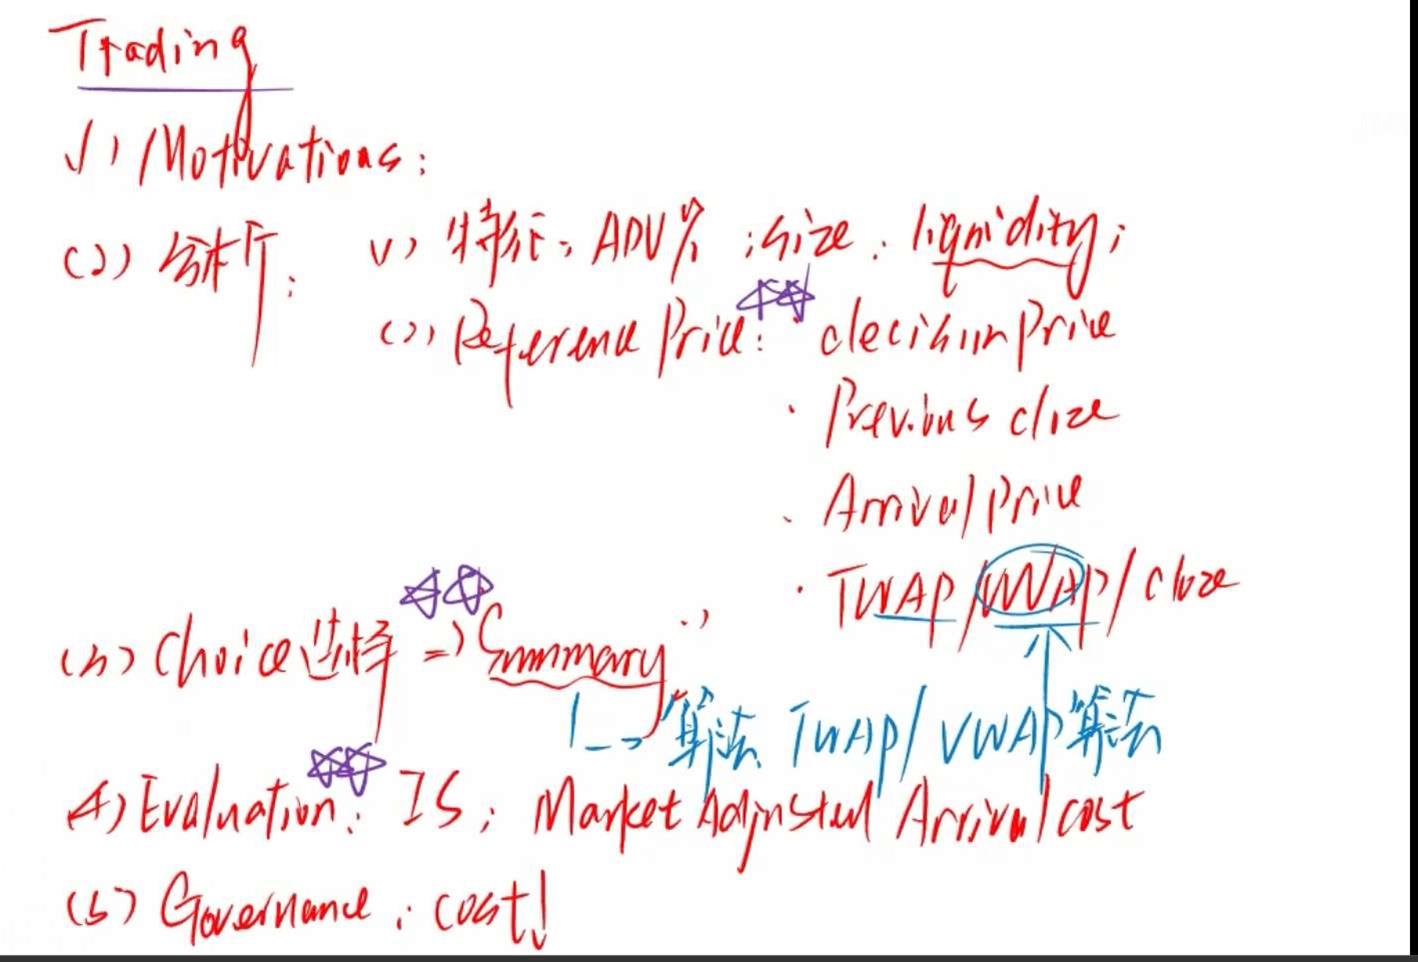 Trading
(1) Motivations:
(2) 分析: (1) 特征: ADV% ; size ; liquidity;
(2) Reference Price: decision price
· Previous close
· Arrival price
· TWAP/VWAP/close
(3) Choice选择 => Summary
算法 TWAP/VWAP算法
(4) Evaluation: IS; Market Adjusted Arrival cost
(5) Governance: cost!